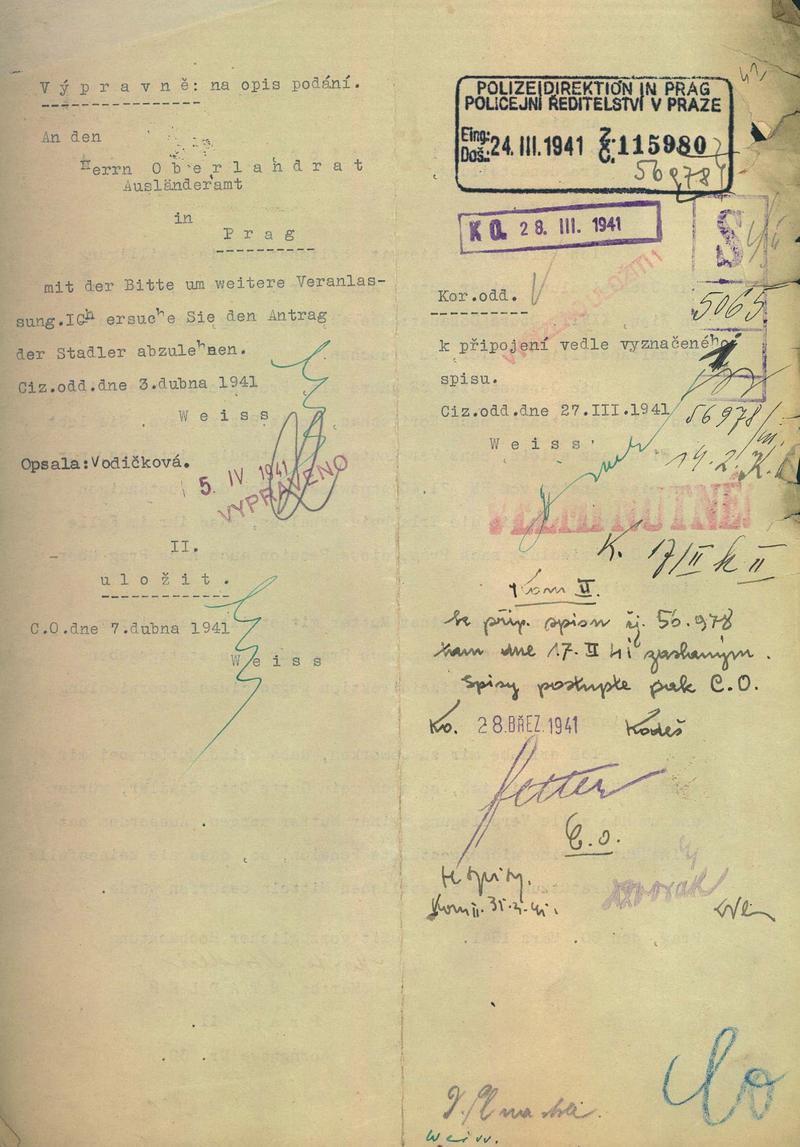 Výpravně: na opis podání.
An den
Herrn Oberlandrat
Ausländeramt
in
Prag
mit der Bitte um weitere Veranlas-
sung.Ich ersuche Sie den Antrag
der Stadler abzulehnen.
Ciz.odd.dne 3.dubna 1941
Weiss
Opsala:Vodičková.
5 IV 1941
VYPRAVENO
II.
uložit.
C.O.dne 7.dubna 1941
Weiss
POLIZEIDIREKTION IN PRAG
POLICEJNÍ ŘEDITELSTVÍ V PRAZE
Eing.: Z.
Doš.: 24. III. 1941 Č. 115980
56978
K O. 28. III. 1941
S
Kor.odd.
5065
k připojení vedle vyznačeného
spisu.
Ciz.odd.dne 27.III.1941
56978/
Weiss
19.2.
VELMI NUTNÉ!
K. 17/II k II
Kom II.
ku příp. spisu čj. 56.978
tam dne 17. II 41 zaslaným.
Spisy postupte pak C.O.
Ko. 28. BŘEZ. 1941 Kodeš
C.O.
Kom II. 31.3.41.
Dvorak
Weiss.